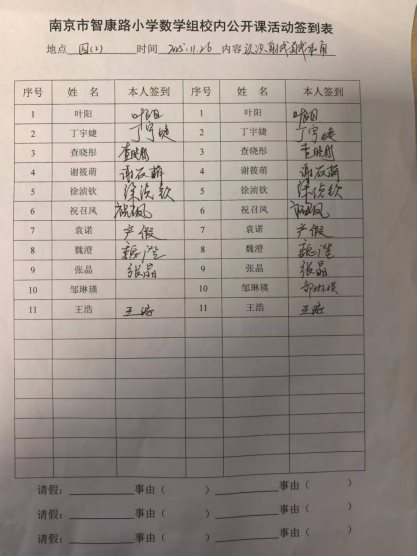 南京市智康路小学数学组校内公开课活动签到表
地点 四(2) 时间 2025.11.26 内容
序号 姓 名 本人签到 序号 姓 名 本人签到
1 叶阳 叶阳 1 叶阳 叶阳
2 丁宇婕 丁宇婕 2 丁宇婕 丁宇婕
3 查晓彤 查晓彤 3 查晓彤 查晓彤
4 谢筱萌 谢筱萌 4 谢筱萌 谢筱萌
5 徐浈钦 徐浈钦 5 徐浈钦 徐浈钦
6 祝召凤 祝召凤 6 祝召凤 祝召凤
7 袁诺 产假 7 袁诺 产假
8 魏澄 魏澄 8 魏澄 魏澄
9 张晶 张晶 9 张晶 张晶
10 邹琳瑛 10 邹琳瑛 邹琳瑛
11 王浩 王浩 11 王浩 王浩
请假: 事由( ) 事由( )
请假: 事由( ) 事由( )
请假: 事由( ) 事由( )